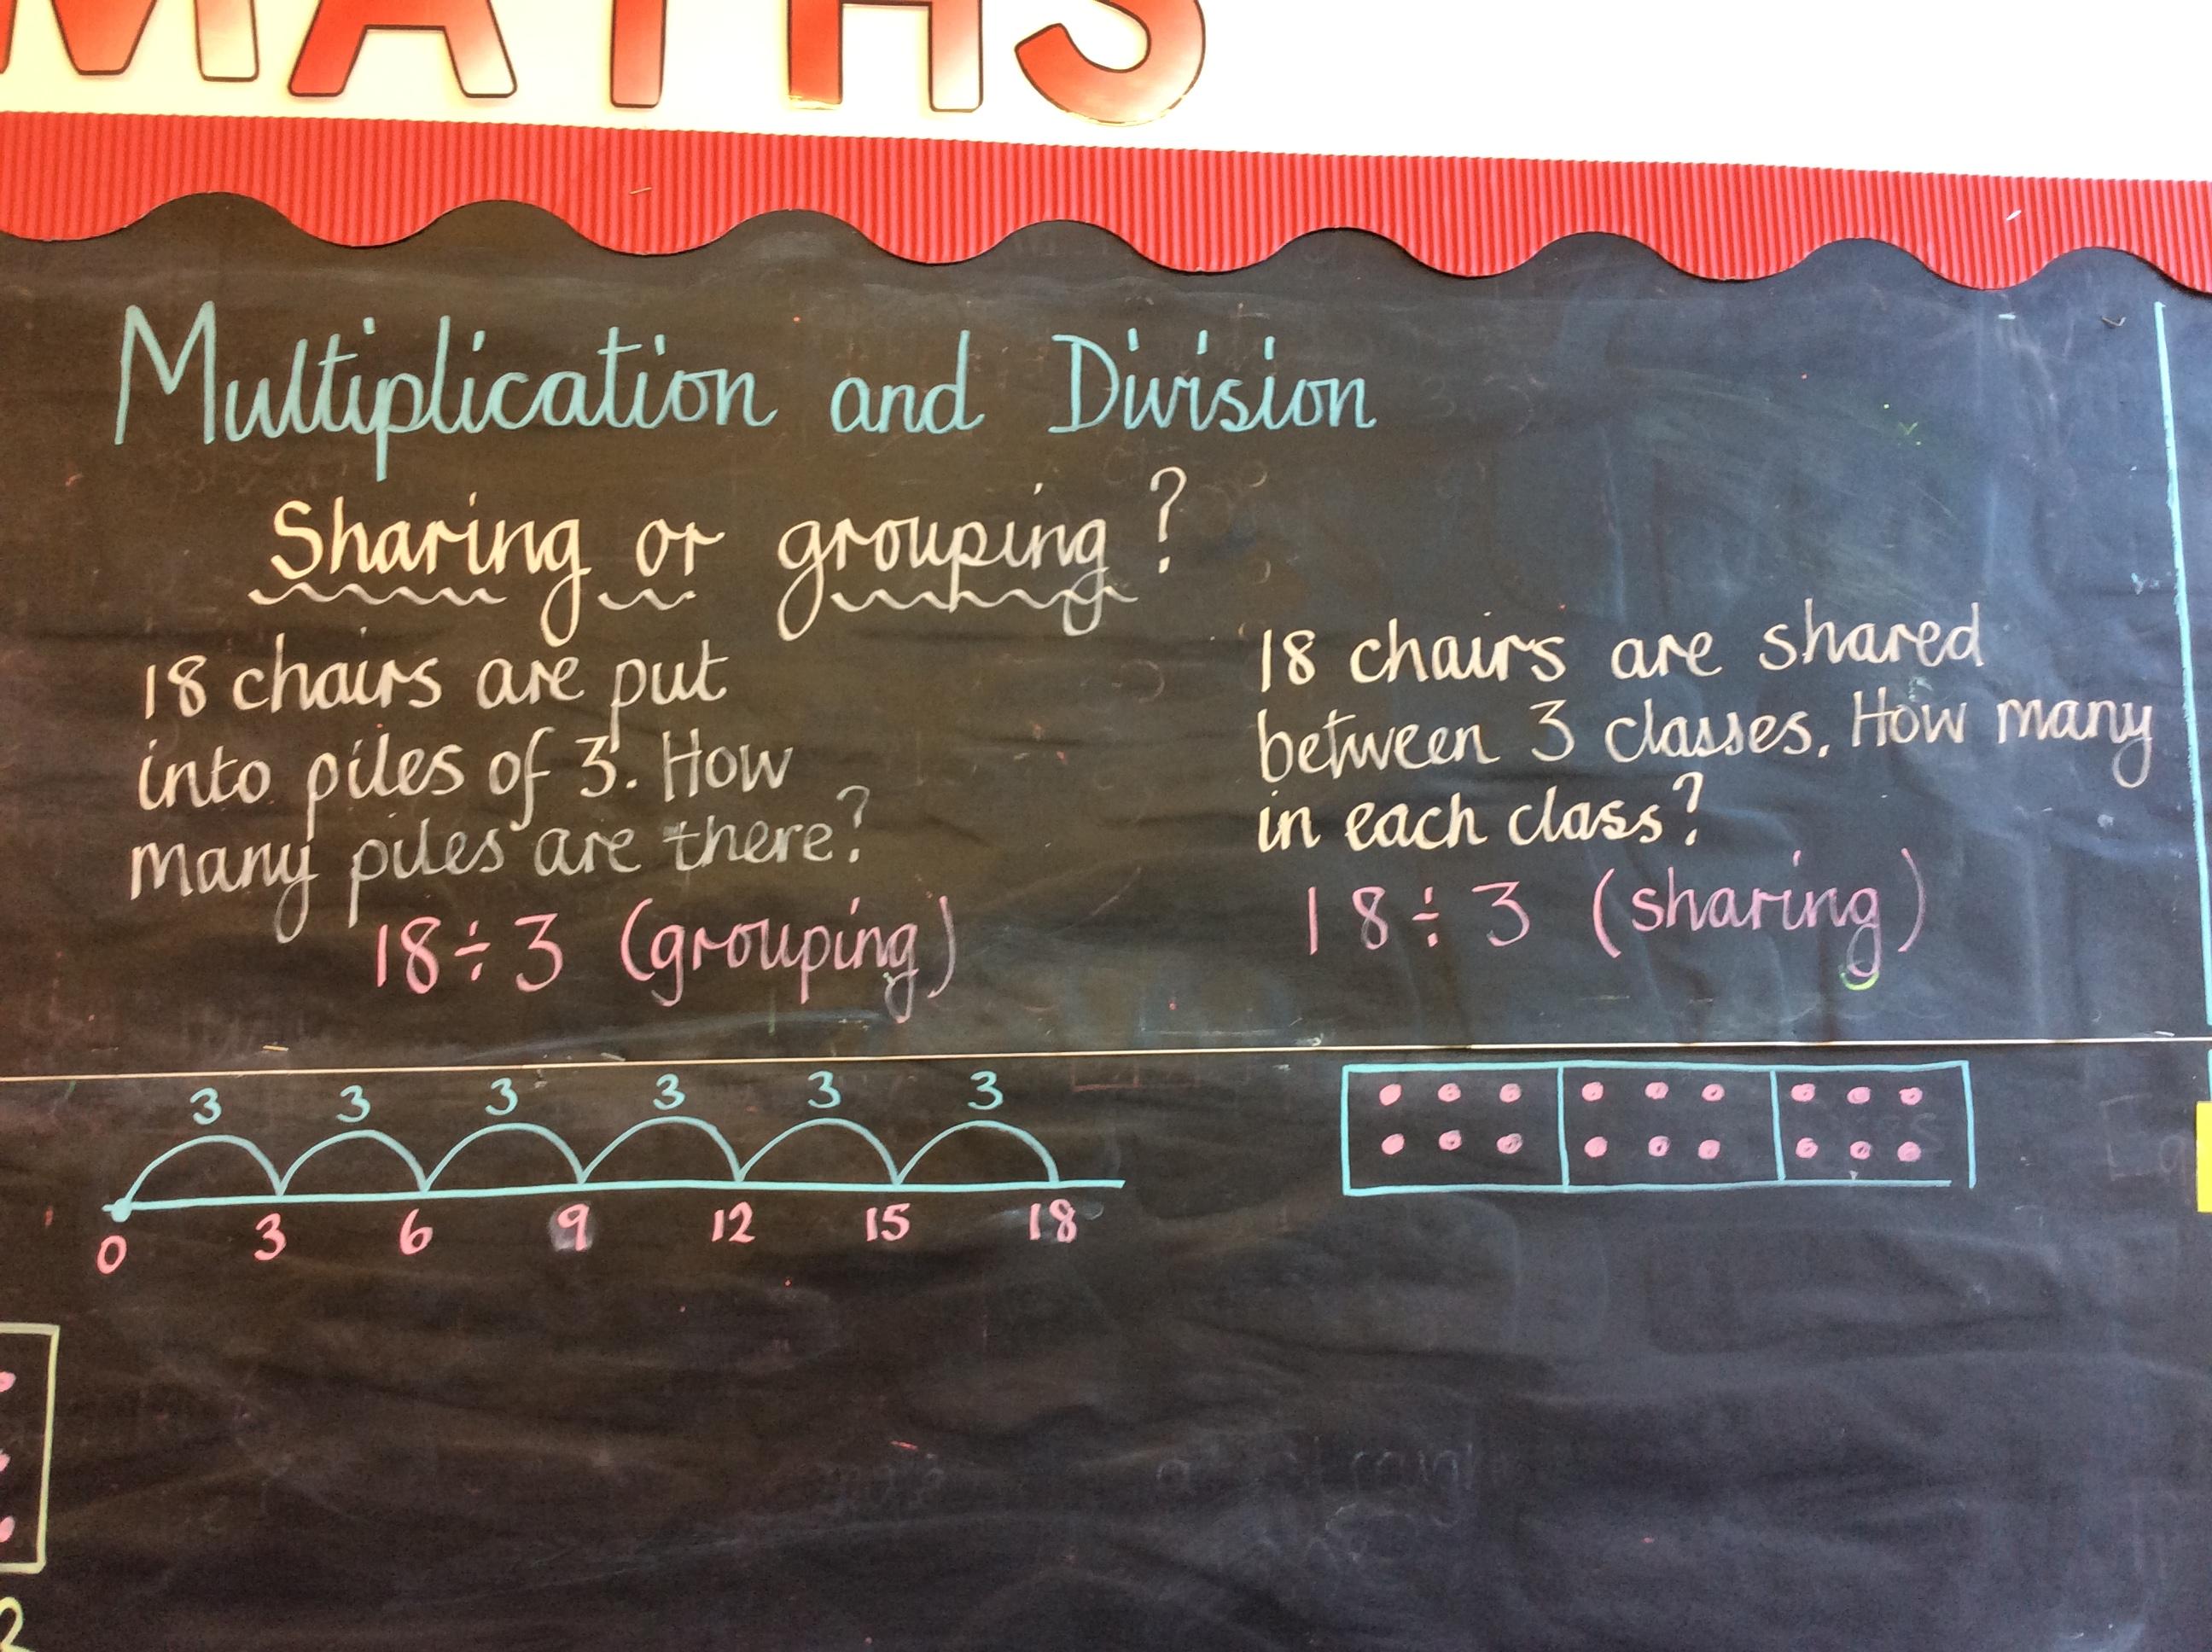 MATHS
Multiplication and Division
Sharing or grouping?
18 chairs are put
into piles of 3. How
many piles are there?
18÷3 (grouping)
3 3 3 3 3 3
0 3 6 9 12 15 18
18 chairs are shared
between 3 classes. How many
in each class?
18÷3 (sharing)